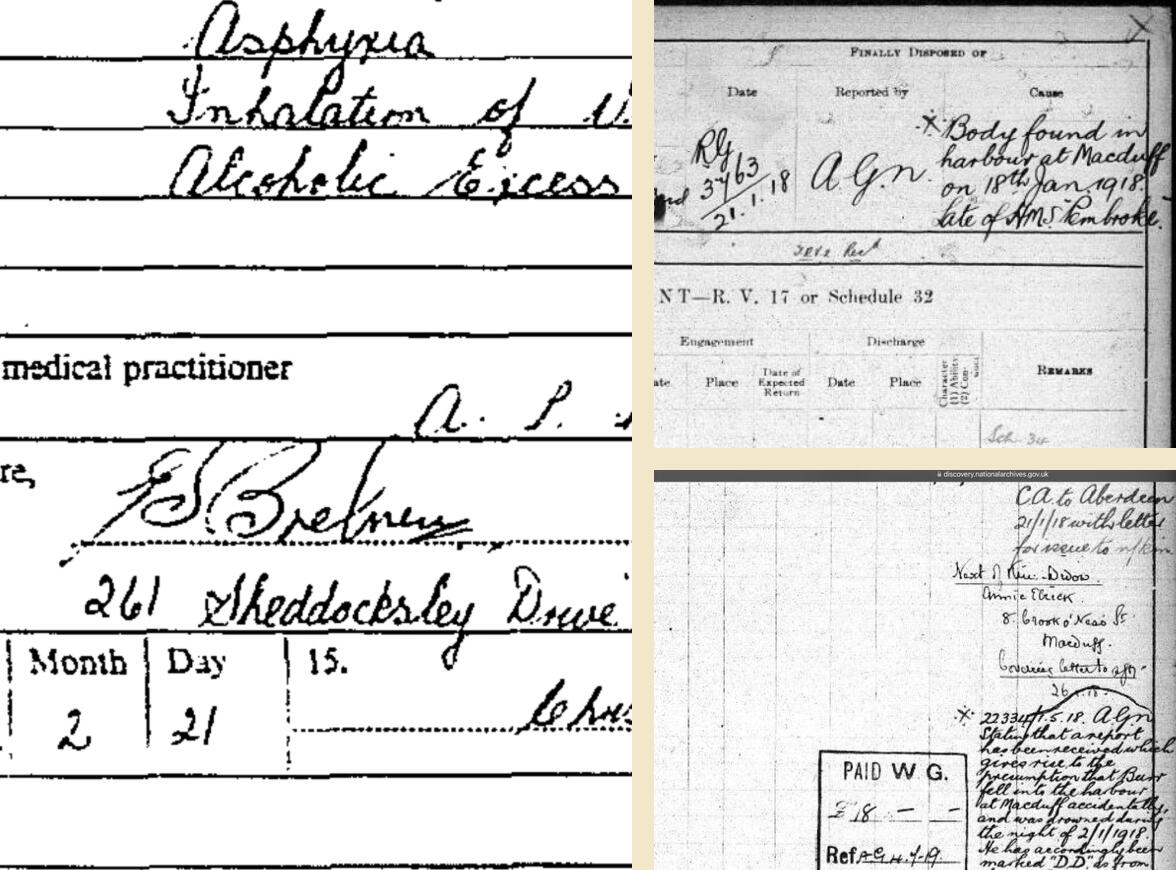 Asphyxia
Inhalation of
Alcoholic Excess
medical practitioner
A. P.
re,
261 Sheddocksley Drive
Month Day 15.
2 21
FINALLY DISPOSED OF
Date Reported by Cause
RG
3763
21.1.18
A.G.n.
Body found in
harbour at Macduff
on 18th Jan. 1918.
late of HMS Pembroke.
NT—R. V. 17 or Schedule 32
Engagement Discharge
ate. Place Date of Expected Return Date Place Character (1) Ability (2) Con- REMARKS
Sch. 34
discovery.nationalarchives.gov.uk
C.A. to Aberdeen
21/1/18 with letter
for issue to
Next of Kin - Widow.
Annie
8. St
Macduff.
Covering letter to
22334/1.5.18. AGn
Stating that a report
has been received which
gives rise to the
presumption that Burr
fell into the harbour
at Macduff accidentally,
and was drowned during
the night of 2/1/1918.
He has accordingly been
marked "D.D." as from
PAID W G.
£ 18 — —
Ref